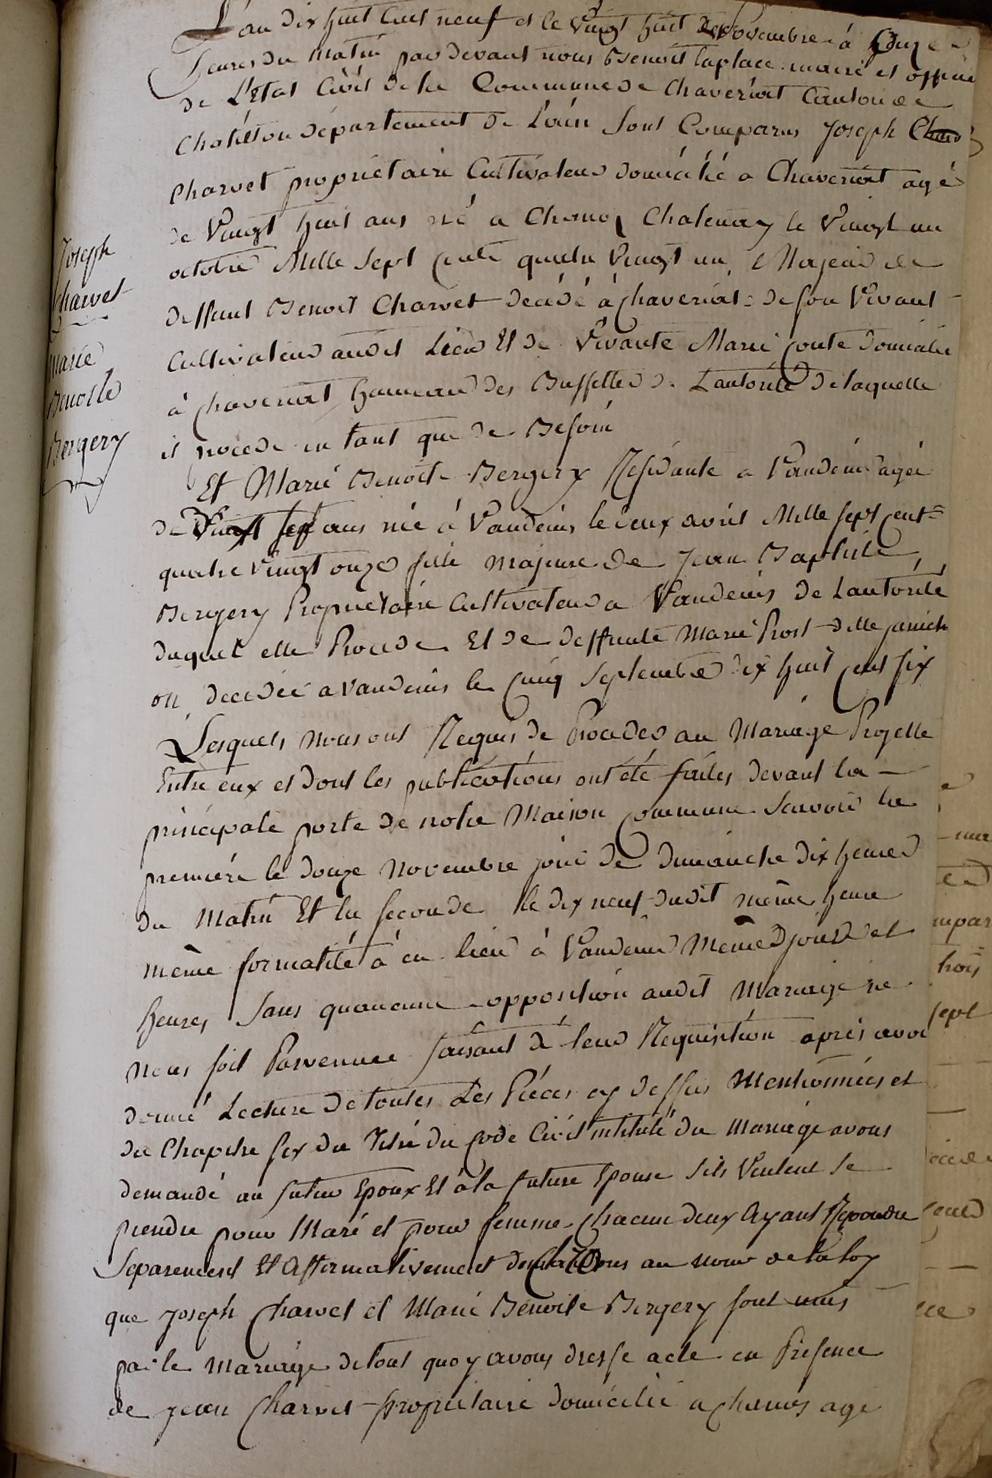 L'an dix huit cent neuf et le vingt huit Novembre à Onze
heures du matin par devant nous Benoit laplace maire et officier
de L'Etat Civil de la Commune de Chaveriat Canton de
Chatillon département de L'ain Sont Comparus Joseph
Charvet propriétaire Cultivateur domicilié a Chaveriat agé
de Vingt huit ans né a Chanoz Chatenay le Vingt un
octobre Mille Sept Cents quatre Vingt un, Majeur de
deffunt Benoit Charvet décédé à Chaveriat de son Vivant
Cultivateur audit Lieu Et de Vivante Marie Conte domiciliée
à Chaveriat hameau des Buffettes de L'autorité de laquelle
il procede en tant que de Besoin
Joseph
Charvet
marie
Benoite
Bergery
Et Marie Benoite Bergery Residante a Vandeins agée
de Vingt sept ans née à Vandeins le deux avril Mille sept cent
quatre vingt onze fille majeure de Jean Baptiste
Bergery Propriétaire Cultivateur a Vandeins de Lautorité
duquel elle Procede Et de deffunte Marie Prost
décédée a Vandeins le Cinq Septembre dix huit cent six
Lesquels nous ont Requis de Proceder au Mariage Projetté
Entre eux et dont les publications ont été faites devant la
principale porte de notre Maison Commune Scavoir la
premiere le douze Novembre jour de dimanche dix heures
du Matin Et la seconde le dix neuf dudit même heure
même formalité à eu lieu à Vandeins Même jours et
heures, Sans quaucune opposition audit Mariage ne
nous soit Parvenue faisant à leur Requisition après avoir
donné Lecture de toutes Les Piéces cy dessus Mentionnées et
du Chapitre six du Titre du Code Civil intitulé du Mariage avons
demandé au futur Epoux Et à la future Epouse S'ils Veulent Se
prendre pour Mari et pour femme Chacun deux Ayant Repondu
Separement Et Affirmativement declarons au nom de la loy
que Joseph Charvet et Marie Benoite Bergery sont unis
par le Mariage de tout quoy avons dressé acte en Présence
de Jean Charvet propriétaire domicilié a Chanoz agé